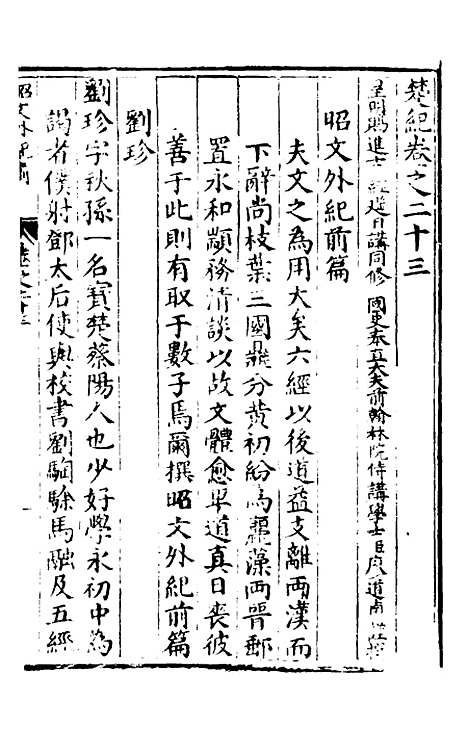 楚紀卷之二十三
賜進士 經筵日講同修 國史奉直大夫前翰林院侍講學士臣廖道南
昭文外紀前篇
夫文之為用大矣六經以後道益支離兩漢而
下辭尚枝葉三國鼎分黃初紛為麗藻兩晉郵
置永和顓務清談以故文體愈卑道真日喪彼
善于此則有取于數子焉爾撰昭文外紀前篇
劉珍
劉珍字秋孫一名寶楚蔡陽人也少好學永初中為
謁者僕射鄧太后使與校書劉騊駼馬融及五經
昭文外紀前 卷之二十三 一